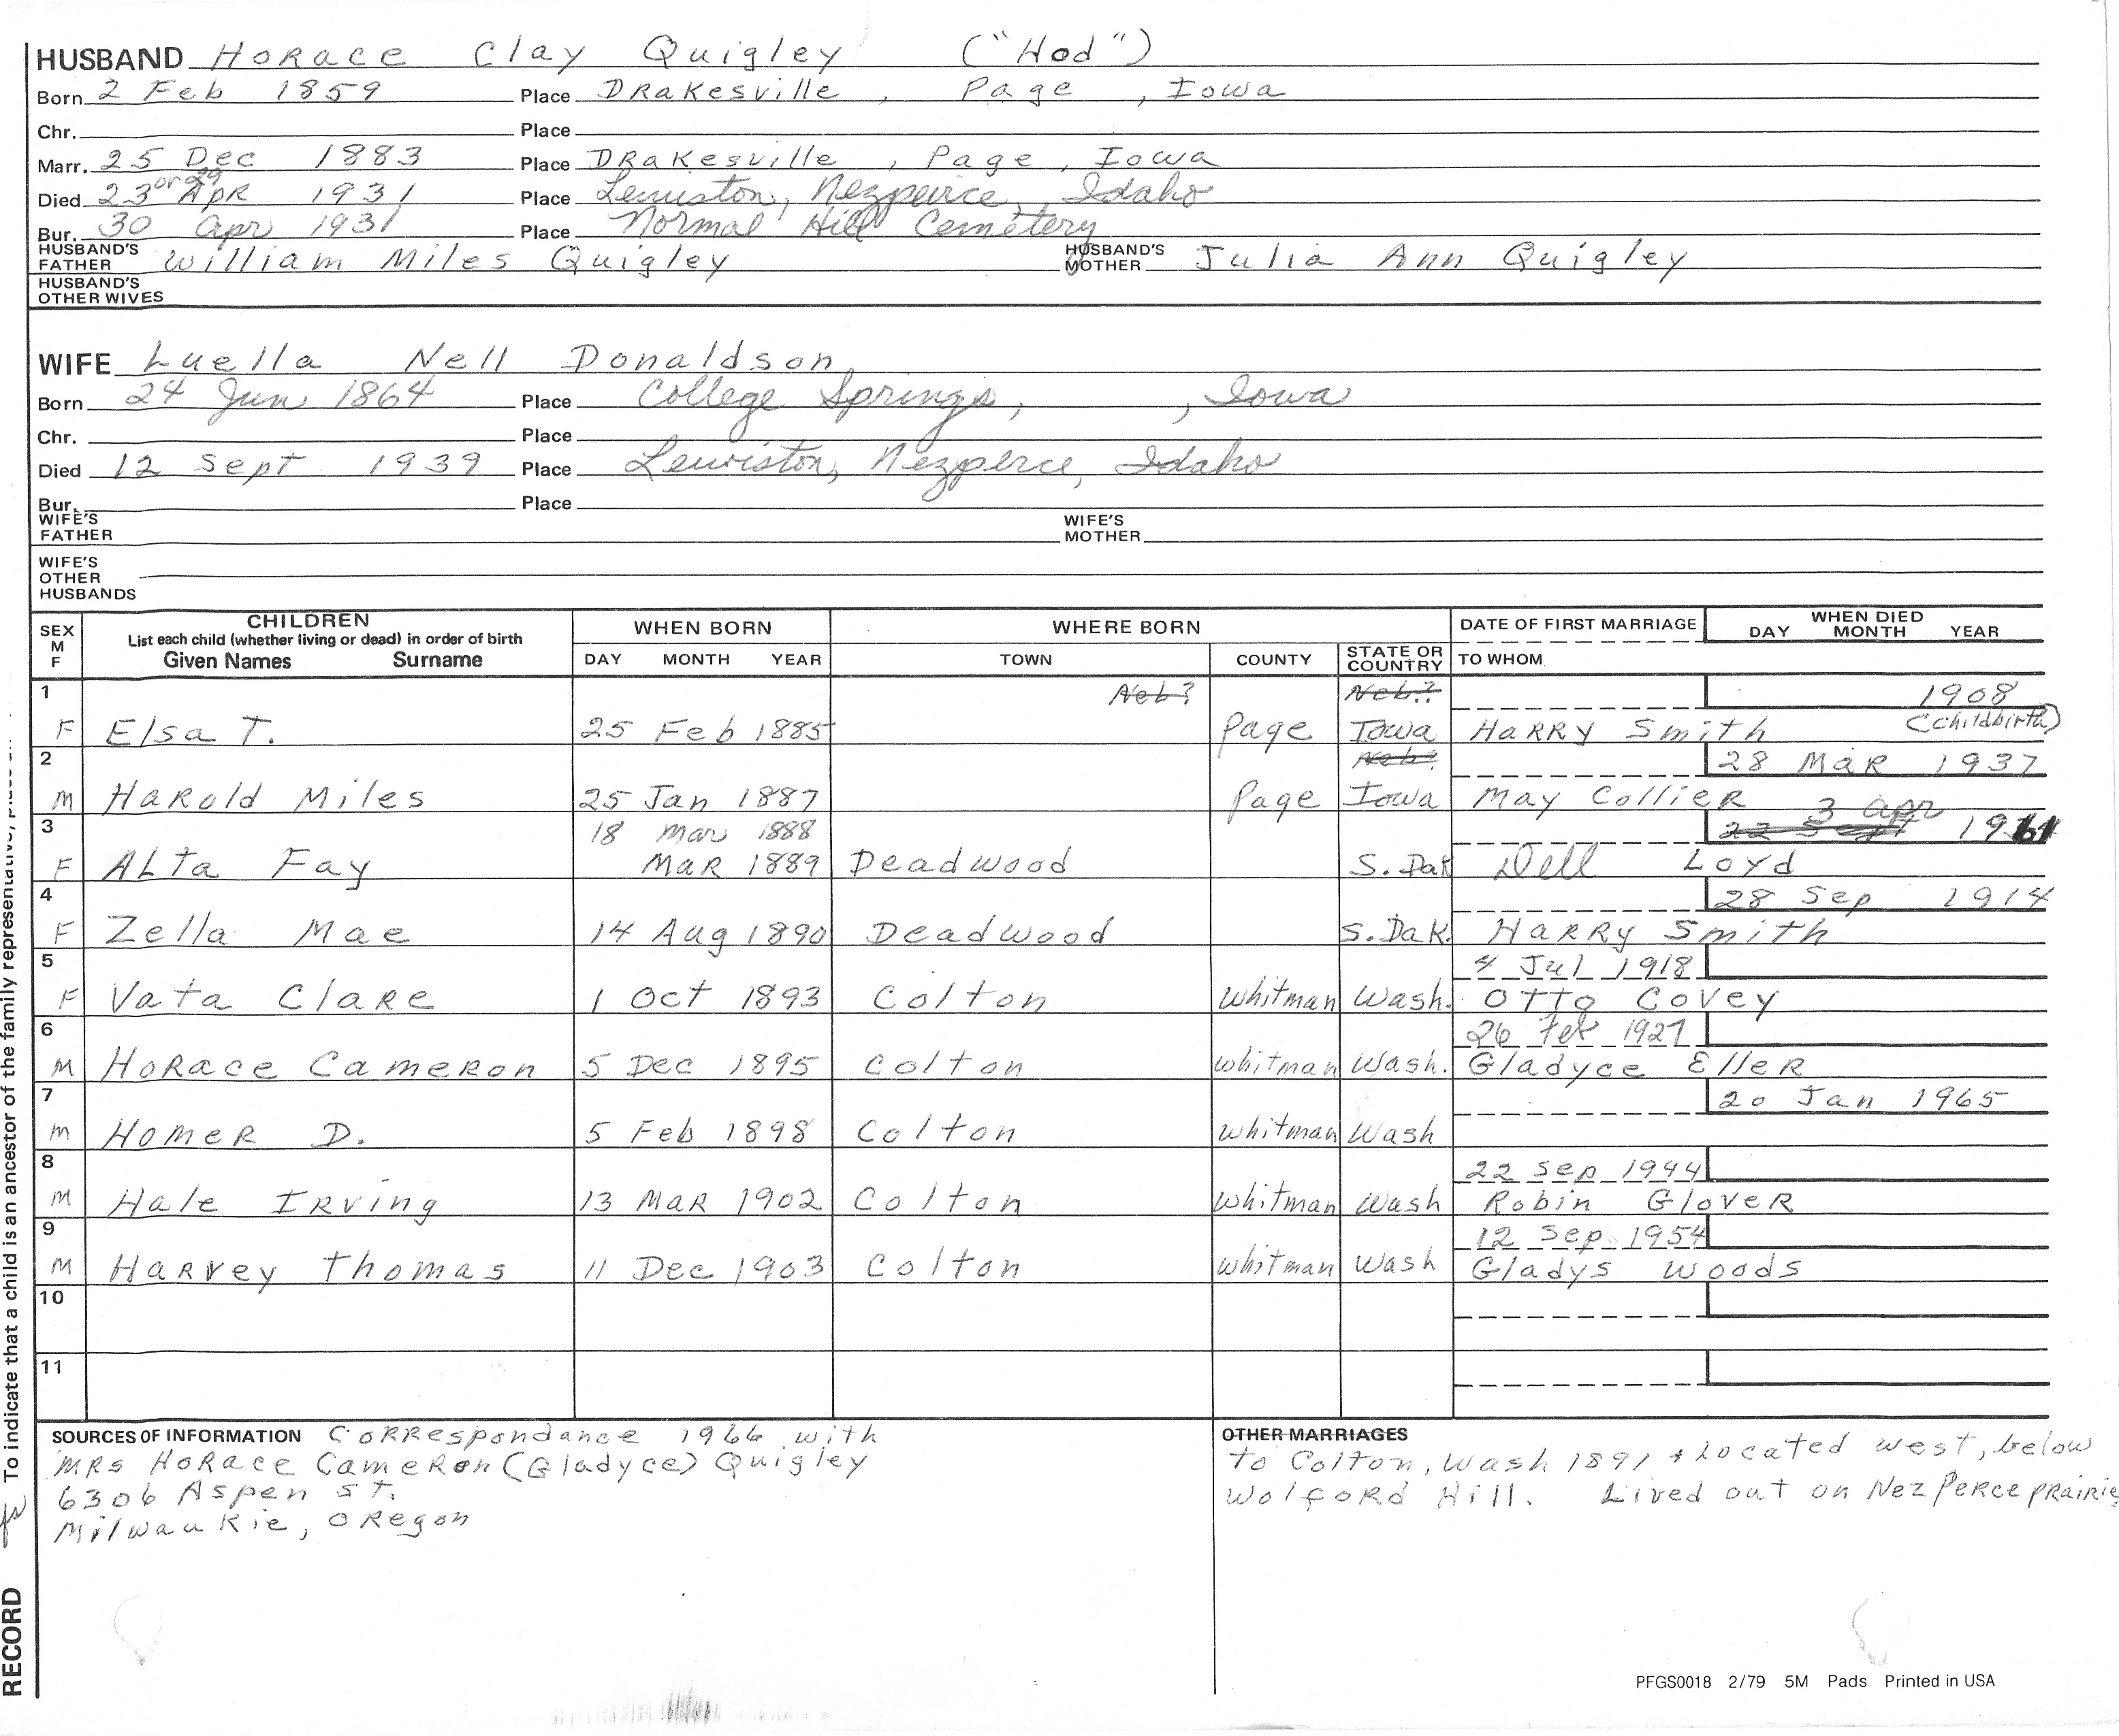 HUSBAND Horace Clay Quigley ("Hod")
Born 2 Feb 1859 Place Drakesville, Page, Iowa
Chr. Place
Marr. 25 Dec 1883 Place Drakesville, Page, Iowa
or 29
Died 23 Apr 1931 Place Lewiston, Nezpeirce, Idaho
Bur. 30 Apr 1931 Place Normal Hill Cemetery
HUSBAND'S FATHER William Miles Quigley HUSBAND'S MOTHER Julia Ann Quigley
HUSBAND'S
OTHER WIVES
WIFE Luella Nell Donaldson
Born 24 Jun 1864 Place College Springs, , Iowa
Chr. Place
Died 12 Sept 1939 Place Lewiston, Nezperce, Idaho
Bur. Place
WIFE'S FATHER WIFE'S MOTHER
WIFE'S
OTHER
HUSBANDS
SEX M F CHILDREN WHEN BORN WHERE BORN DATE OF FIRST MARRIAGE WHEN DIED
List each child (whether living or dead) in order of birth DAY MONTH YEAR
Given Names Surname DAY MONTH YEAR TOWN COUNTY STATE OR COUNTRY TO WHOM
1 Neb? Neb? 1908
F Elsa T. 25 Feb 1885 Page Iowa Harry Smith (childbirth)
2 Neb? 28 Mar 1937
M Harold Miles 25 Jan 1887 Page Iowa May Collier
3 Apr
3 18 Mar 1888 22 Sept 1961
F Alta Fay Mar 1889 Deadwood S. Dak Dell Loyd
4 28 Sep 1914
F Zella Mae 14 Aug 1890 Deadwood S. Dak. Harry Smith
5 4 Jul 1918
F Vata Clare 1 Oct 1893 Colton Whitman Wash. Otto Covey
6 26 Feb 1927
M Horace Cameron 5 Dec 1895 Colton Whitman Wash. Gladyce Eller
7 20 Jan 1965
M Homer D. 5 Feb 1898 Colton Whitman Wash
8 22 Sep 1944
M Hale Irving 13 Mar 1902 Colton Whitman Wash Robin Glover
9 12 Sep 1954
M Harvey Thomas 11 Dec 1903 Colton Whitman Wash Gladys Woods
10
11
SOURCES OF INFORMATION Correspondance 1966 with
Mrs Horace Cameron (Gladyce) Quigley
6306 Aspen St.
Milwaukie, Oregon
OTHER MARRIAGES
to Colton, Wash 1891 + located west, below
Wolford Hill. Lived out on Nez Perce prairie
PFGS0018 2/79 5M Pads Printed in USA
To indicate that a child is an ancestor of the family representative,
RECORD